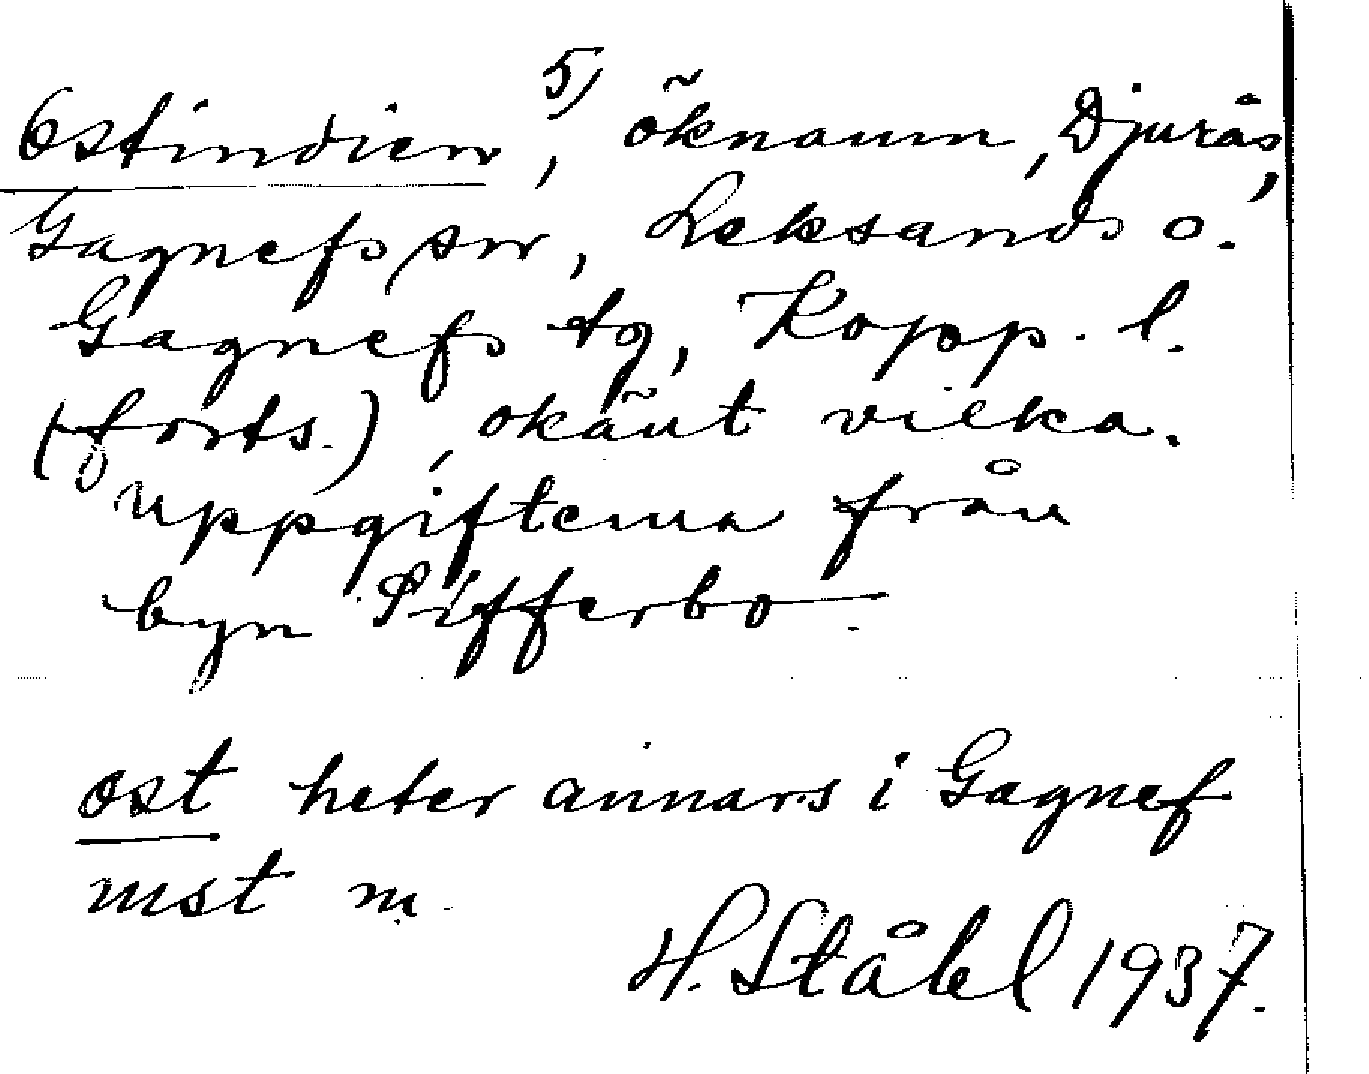 Ostindien 5), öknamn, Djurås,
Gagnefs sn, Leksands o.
Gagnefs tg, Kopp. l.
(forts.), okänt vilka.
Uppgifterna från
byn Pifferbo.
ost heter annars i Gagnef
ɯst m.
H. Ståhl 1937.